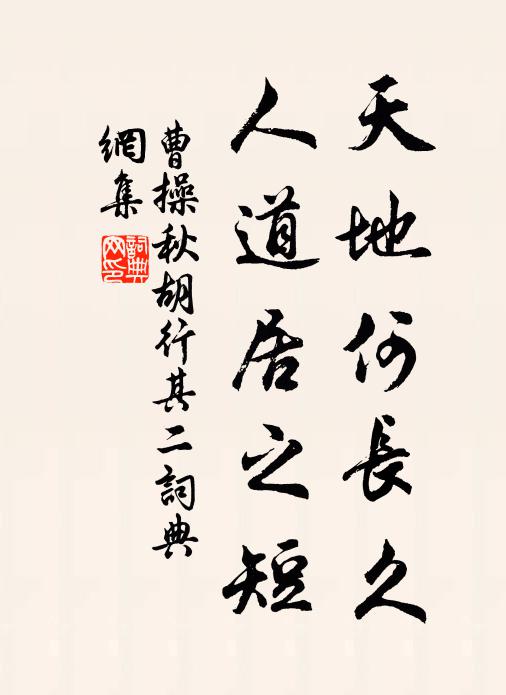 天地何長久
人道居之短
曹操秋胡行其二詞典
網集
詞典
网印